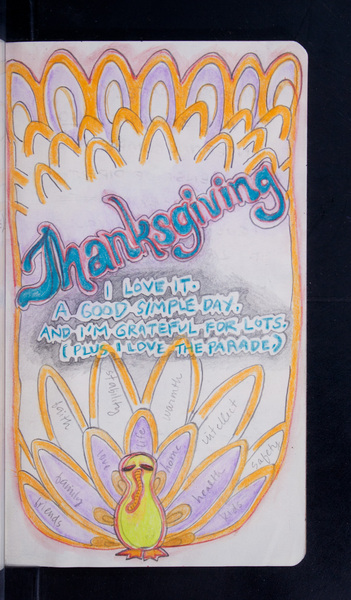 Thanksgiving
I LOVE IT.
A GOOD SIMPLE DAY.
AND I'M GRATEFUL FOR LOTS.
(PLUS I LOVE THE PARADE.)
faith
stability
warmth
intellect
safety
life
love
home
family
health
friends